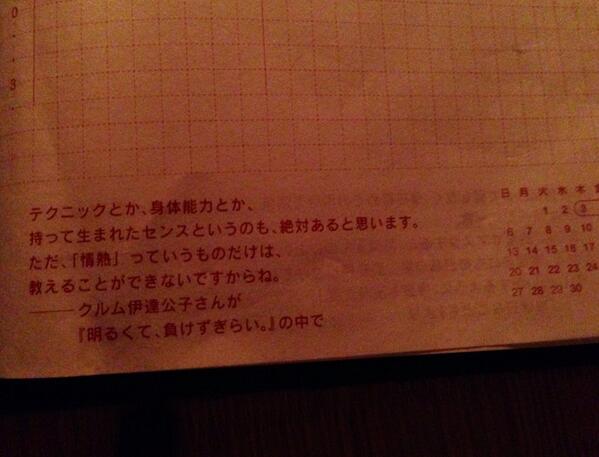 0
3
テクニックとか、身体能力とか、
持って生まれたセンスというのも、絶対あると思います。
ただ、「情熱」っていうものだけは、
教えることができないですからね。
——クルム伊達公子さんが
『明るくて、負けずぎらい。』の中で
日 月 火 水 木
1 2 3
6 7 8 9 10
13 14 15 16 17
20 21 22 23 24
27 28 29 30